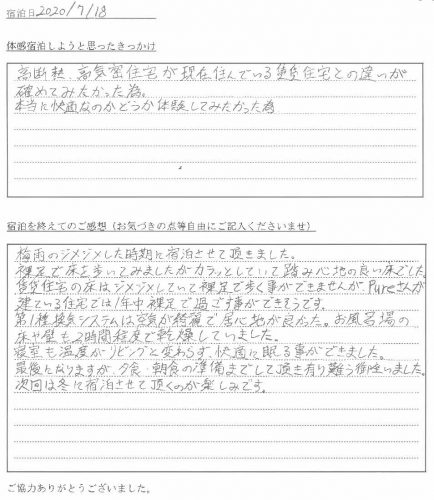 宿泊日 2020/7/18
体感宿泊しようと思ったきっかけ
高断熱、高気密住宅が現在住んでいる賃貸住宅との違いが
確めてみたかった為。
本当に快適なのかどうか体験してみたかった為
宿泊を終えてのご感想（お気づきの点等自由にご記入くださいませ）
梅雨のジメジメした時期に宿泊させて頂きました。
裸足で床を歩いてみましたがカラッとしていて踏み心地の良い床でした。
賃貸住宅の床はジメジメしていて裸足で歩く事ができませんが、Pureさんが
建ている住宅では1年中裸足で過ごす事ができそうです。
第1種換気システムは空気が綺麗で居心地が良かった。お風呂場の
床や壁も2時間程度で乾燥していました。
寝室も温度がリビングと変わらず、快適に眠る事ができました。
最後になりますが、夕食・朝食の準備までして頂き有り難う御座いました。
次回は冬に宿泊させて頂くのが楽しみです。
ご協力ありがとうございました。